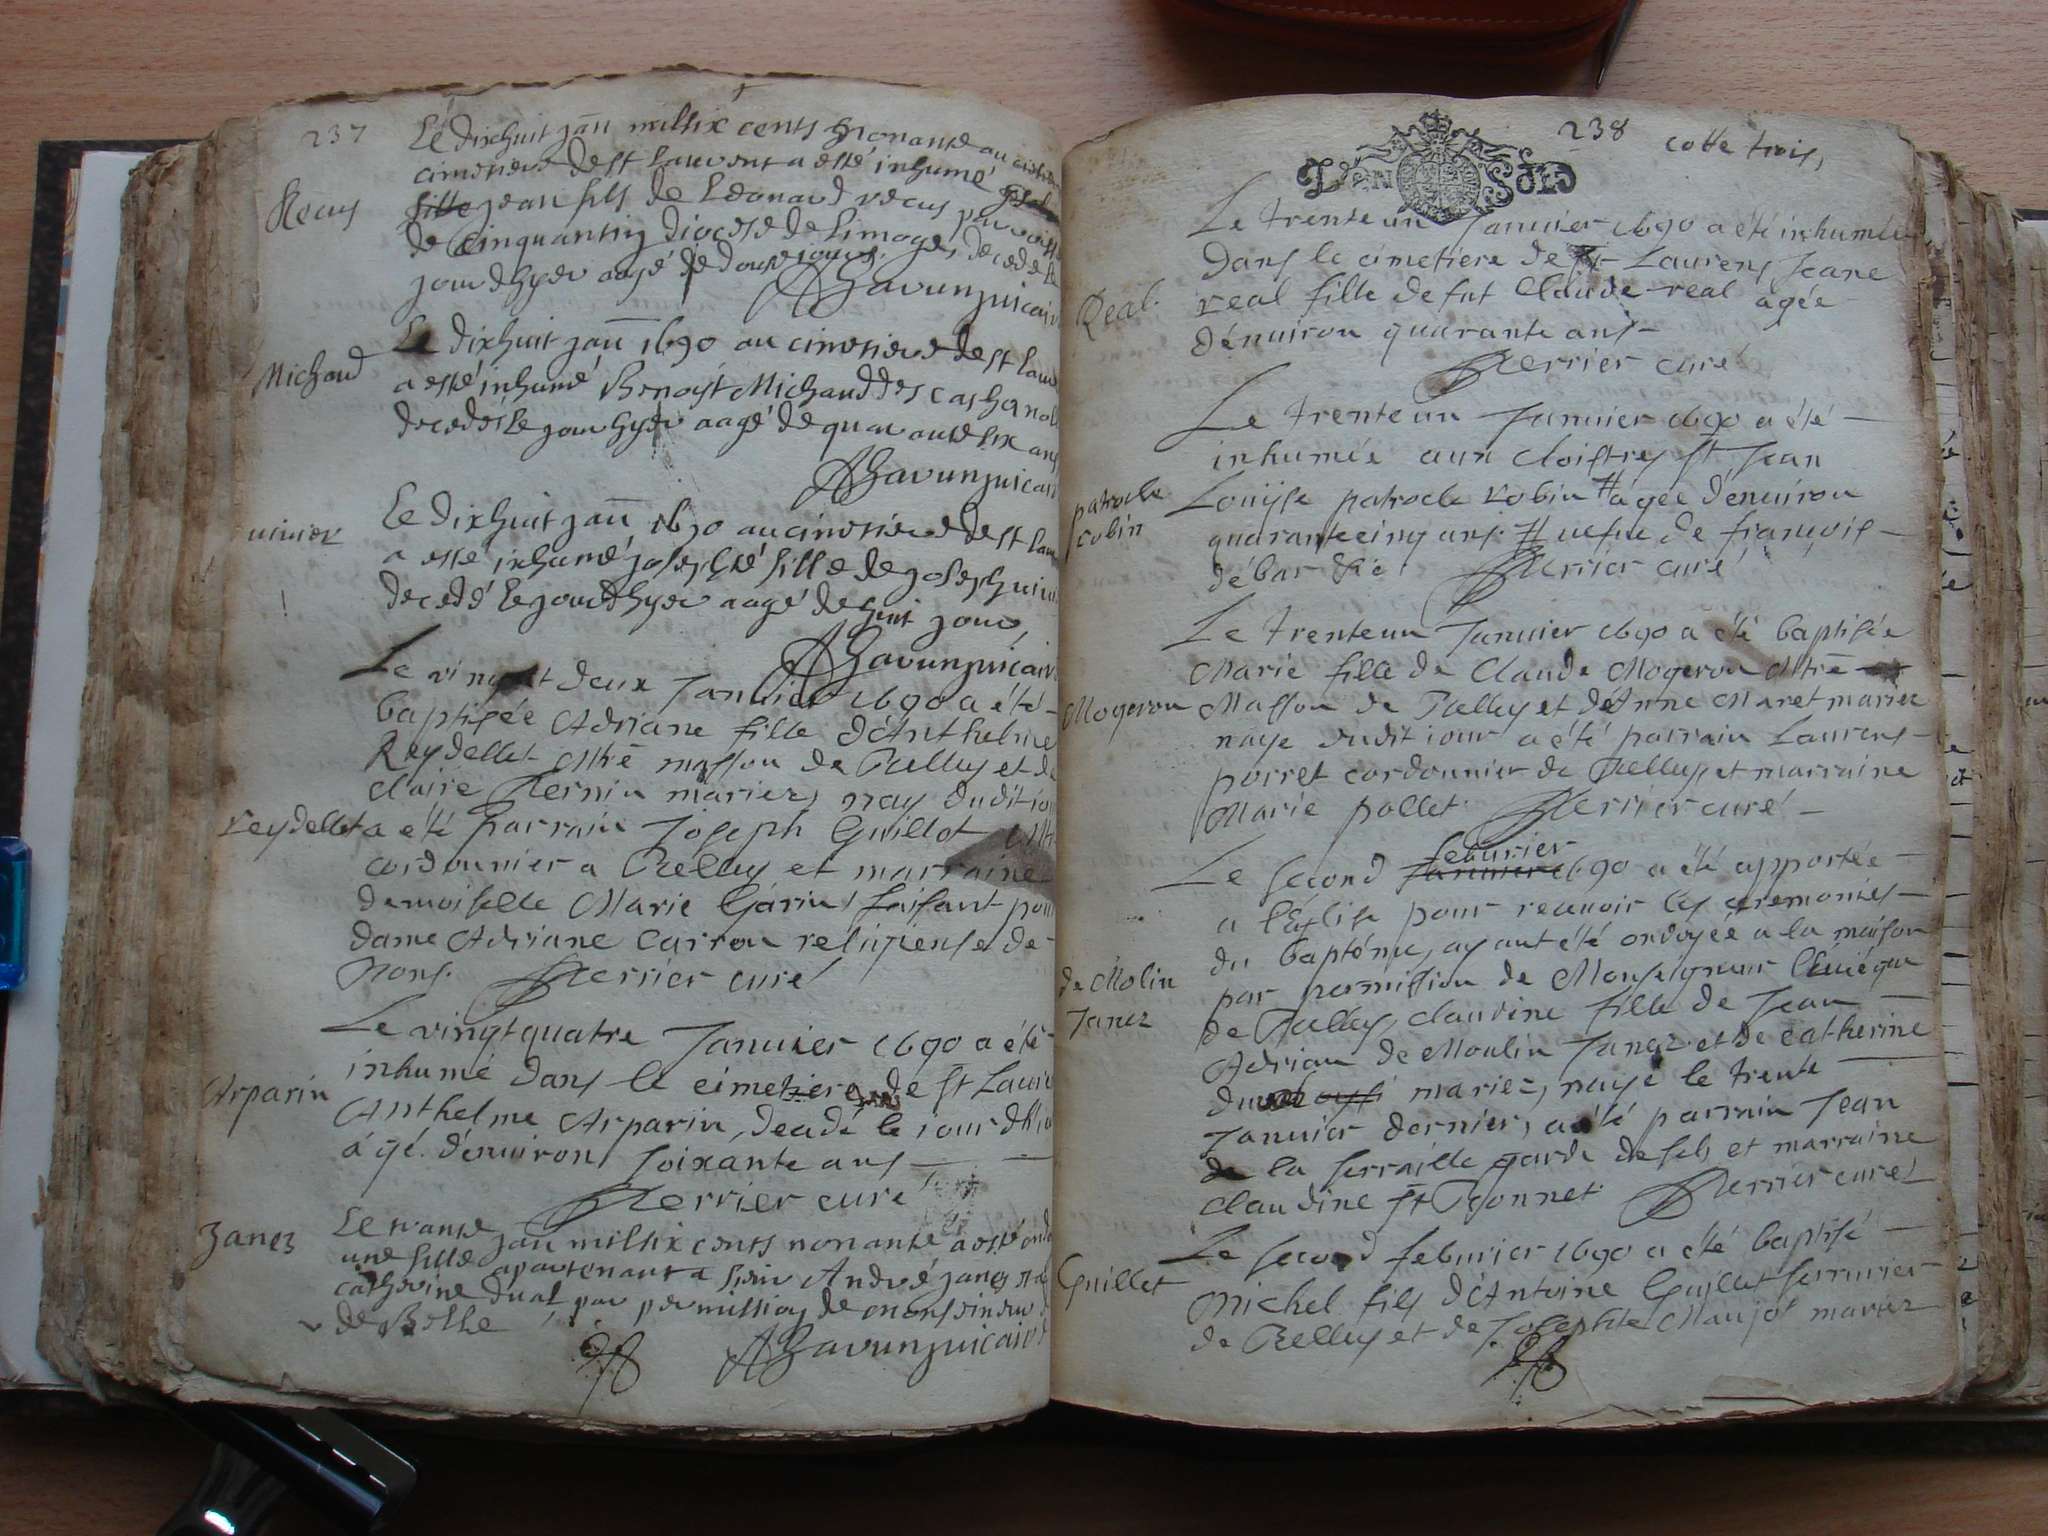 237
Le dixhuit jan̄ milsix cents nonante au
cimetiere de st laurent a esté inhumé
Recus
fille jean fils de Leonard recus
de Cinquantin diocese de Limoges decede le
jour dhyer aagé de douse jours.
Le dixhuit jan̄ 1690 au cimetiere de st
Michaud
a esté inhumé Benoist Michaud des
decedé le jour hyer aagé de quarante six ans
Le dixhuit jan̄ 1690 au cimetiere de st
a esté inhumé josephté fille de joseph
decedé le jour dhyer aagé de huit jours
Le vingt deux Januier 1690 a été
baptisée Adriane fille d'Anthelme
Reydellet Mtrē masson de Belley et de
claire Pernin mariez, nay dudit
reydellet a été parrain Joseph Guillot
cordonnier a Belley et marraine
demoiselle Marie Garin faisant pour
dame Adriane Carron religieuse de
Nons. Perrier curé
Le vingtquatre Januier 1690 a été
inhumé dans le cimetiere de St
Arparin
Anthelme Arparin, decedé le jour
âgé d'enuiron soixante ans
Perrier curé
Janez
Le trante jan milsix cents nonante a esté
une fille apartenant a sieur André janez
catherine dual, par permission de monseineur
de Belle
238
cotte trois,
DEN SOLS
Le trente un Januier 1690 a été inhumée
Dans le cimetiere de St Laurens Jeane
Real.
real fille de fut Claude real agée
d'enuiron quarante ans
Perrier curé
Le trente un Januier 1690 a été
inhumée aux cloistres St Jean
patrocle
robin
Louijse patrocle robin # agée d'enuiron
quarantecinq ans # uefue de françois
Perrier curé
Le trenteun Januier 1690 a été baptisée
Marie fille de Claude Mogeron Mtrē
Mogeron
Masson de Belley et de Anne Maret mariez
naye dudit iour a été parrain Laurens
porret cordonnier de Belley et marraine
Marie pollet Perrier curé
feburier
Le second Januier 1690 a été apportée
a l'Eglise pour receuoir les ceremonies
du baptéme, ayant été ondoyée a la maison
de Molin
Janez
par permission de Monseigneur l'Euéque
de Belley, claudine fille de Jean
Adrian de Moulin Janez et de catherine
mariez, nayé le trente
Januier dernier, a été parrain Jean
de la serraille garde de sels et marraine
claudine Perrier curé
Le second feburier 1690 a été baptisé
Guillet
Michel fils d'Antoine Guillet serrurier
de Belley et de Josephte Maujot mariez